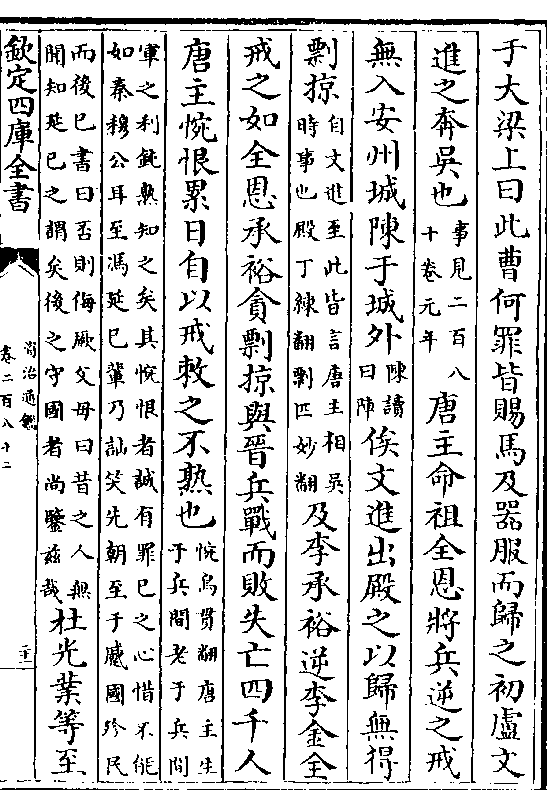 于大梁上曰此曹何罪皆賜馬及器服而歸之初盧文
進之奔吳也事見二百八十卷元年唐主命祖全恩將兵逆之戒
無入安州城陳于城外陳讀曰陣俟文進出殿之以歸無得
剽掠自文進至此皆言唐主相吳時事也殿丁練翻剽匹妙翻及李承裕逆李金全
戒之如全恩承裕貪剽掠與晉兵戰而敗失亡四千人
唐主惋恨累日自以戒敕之不熟也惋烏貫翻唐主生于兵間老于兵間
軍之利鈍熟知之矣其惋恨者誠有罪已之心惜不能
如秦穆公耳至馮延巳輩乃訕笑先朝至于蹙國殄民
而後已書曰否則侮厥父母曰昔之人無
聞知延巳之謂矣後之守國者尚鑒兹哉杜光業等至
欽定四庫全書
資治通鑑
卷二百八十二